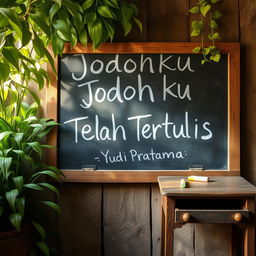 JodohKu
Jodoh ku
Telah Tertulis
- Yudi Pratama -